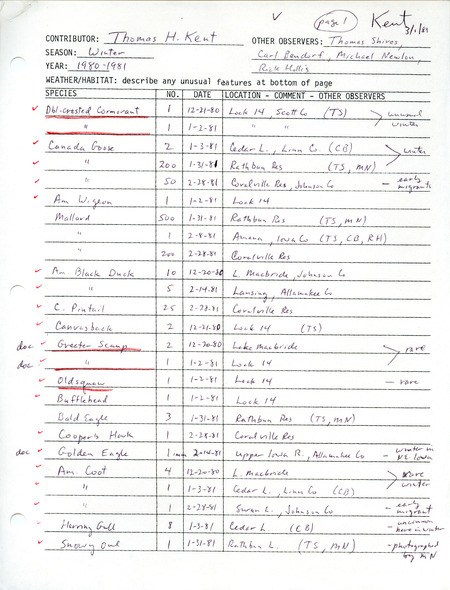 page 1 Kent 3/1/81
CONTRIBUTOR: Thomas H. Kent OTHER OBSERVERS: Thomas Shires,
SEASON: Winter Carl Bendorf, Michael Newlon,
YEAR: 1980-1981 Rick Hollis
WEATHER/HABITAT: describe any unusual features at bottom of page
SPECIES NO. DATE LOCATION - COMMENT - OTHER OBSERVERS
Dbl-crested Cormorant 1 12-21-80 Lock 14 Scott Co (TS) unusual
" 1 1-2-81 " " winter
Canada Goose 2 1-3-81 Cedar L., Linn Co (CB) winter
" 200 1-31-81 Rathbun Res (TS, MN)
" 50 2-28-81 Coralville Res, Johnson Co - early migrants
Am Wigeon 1 1-2-81 Lock 14
Mallard 500 1-31-81 Rathbun Res (TS, MN)
" 1 2-8-81 Amana, Iowa Co (TS, CB, RH)
" 200 2-28-81 Coralville Res
Am. Black Duck 10 12-20-80 L. Macbride, Johnson Co
" 5 2-14-81 Lansing, Allamakee Co
C. Pintail 25 2-28-81 Coralville Res
Canvasback 2 12-21-80 Lock 14 (TS)
doc Greater Scaup 2 12-20-80 Lake Macbride rare
doc " 1 1-2-81 Lock 14
Oldsquaw 1 1-2-81 Lock 14 - rare
Bufflehead 1 1-2-81 Lock 14
Bald Eagle 3 1-31-81 Rathbun Res (TS, MN)
Cooper's Hawk 1 2-28-81 Coralville Res
doc Golden Eagle 1 imm 2-14-81 Upper Iowa R., Allamakee Co - winter in NE Iowa
Am. Coot 4 12-20-80 L. Macbride rare
" 1 1-3-81 Cedar L., Linn Co (CB) winter
" 1 2-28-81 Swan L., Johnson Co - early migrant
Herring Gull 8 1-3-81 Cedar L. (CB) - uncommon here in winter
Snowy Owl 1 1-31-81 Rathbun L. (TS, MN) - photographed by MN